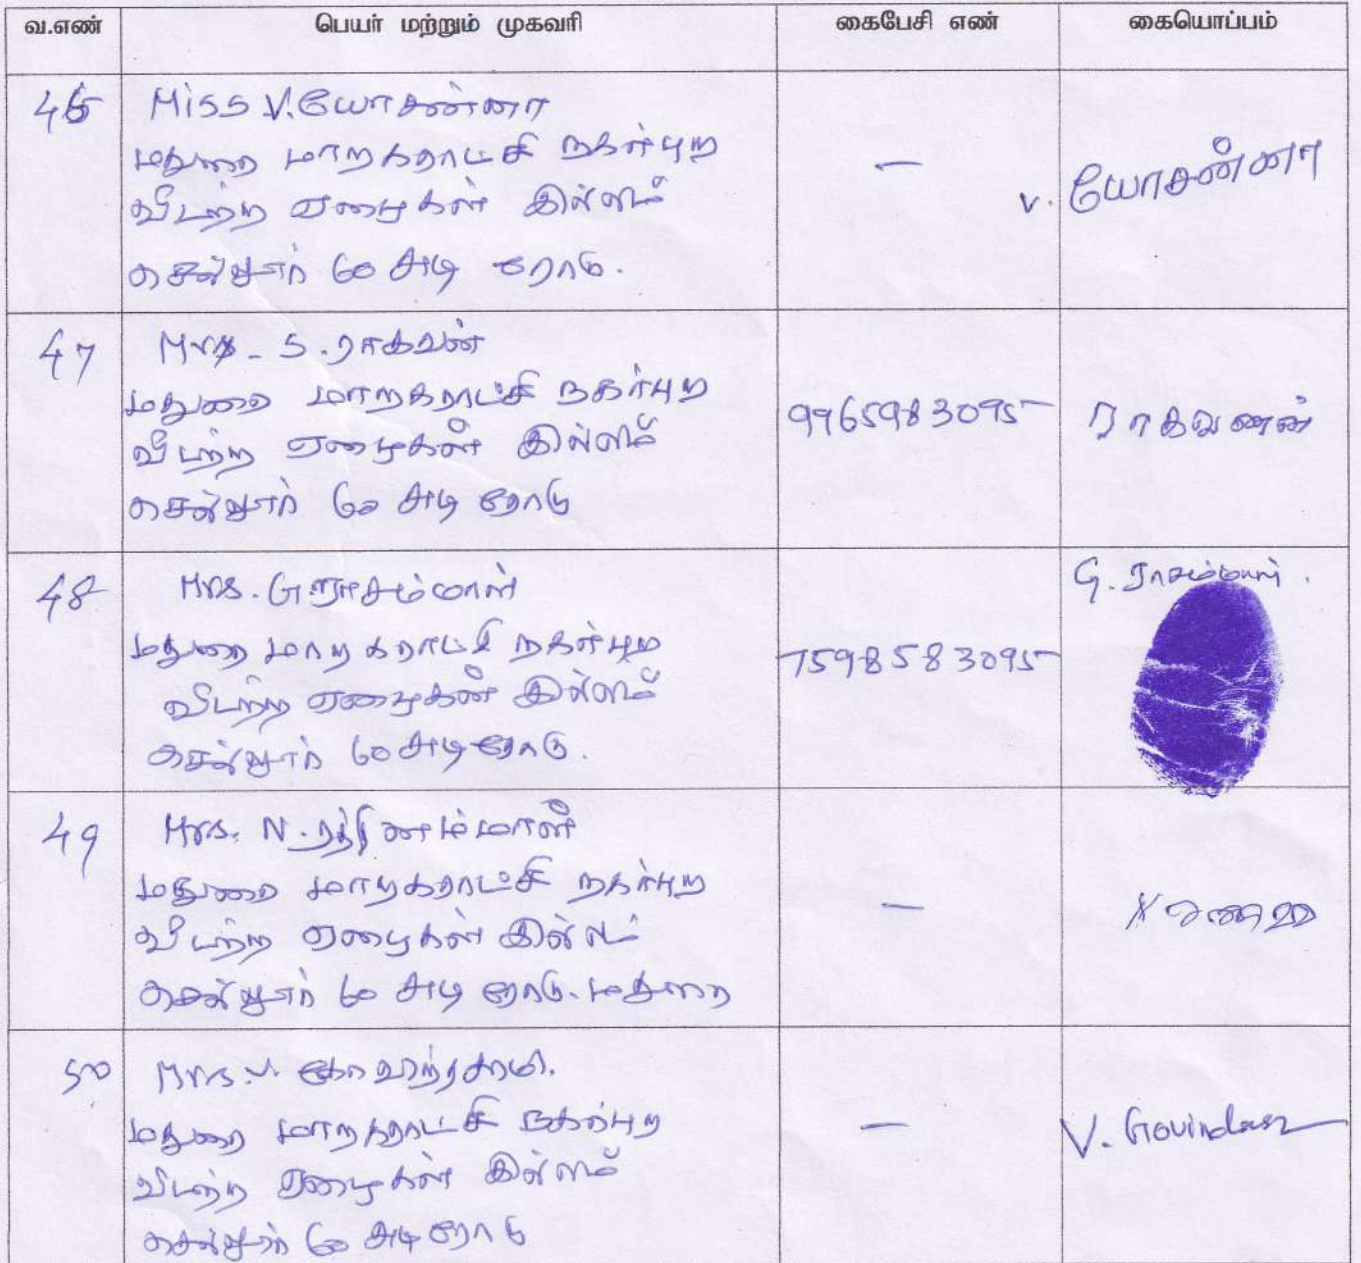 வ.எண் பெயர் மற்றும் முகவரி கைபேசி எண் கையொப்பம்
46 Miss V.யோசன்னா
மதுரை மாநகராட்சி நகர்புற
வீடற்ற ஏழைகள் இல்லம்
செல்லூர் 60 அடி ரோடு.
— v. யோசன்னா
47 Mrs - S.ராகவன்
மதுரை மாநகராட்சி நகர்புற
வீடற்ற ஏழைகள் இல்லம்
செல்லூர் 60 அடி ரோடு
9965983095
48 Mrs. G.ராசம்மாள்
மதுரை மாநகராட்சி நகர்புற
வீடற்ற ஏழைகள் இல்லம்
செல்லூர் 60 அடி ரோடு.
7598583095 G. ராசம்மாள்.
49 Mrs. N.ரத்தினம்மாள்
மதுரை மாநகராட்சி நகர்புற
வீடற்ற ஏழைகள் இல்லம்
செல்லூர் 60 அடி ரோடு. மதுரை
—
50 Mrs.V. கோவிந்தசாமி.
மதுரை மாநகராட்சி நகர்புற
வீடற்ற ஏழைகள் இல்லம்
செல்லூர் 60 அடி ரோடு
— V.